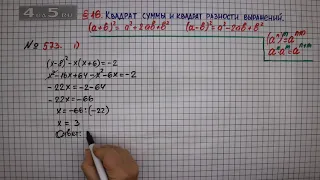 4.5
§ 16. Квадрат суммы и квадрат разности выражений.
(a+b)² = a²+2ab+b² (a-b)² = a²-2ab+b²
№ 573. 1)
(aⁿ)ᵐ = aⁿᵐ
aⁿ·aᵐ = aⁿ⁺ᵐ
(x-8)² - x(x+6) = -2
x² - 16x + 64 - x² - 6x = -2
-22x = -2 - 64
-22x = -66
x = -66 : (-22)
x = 3
Ответ: